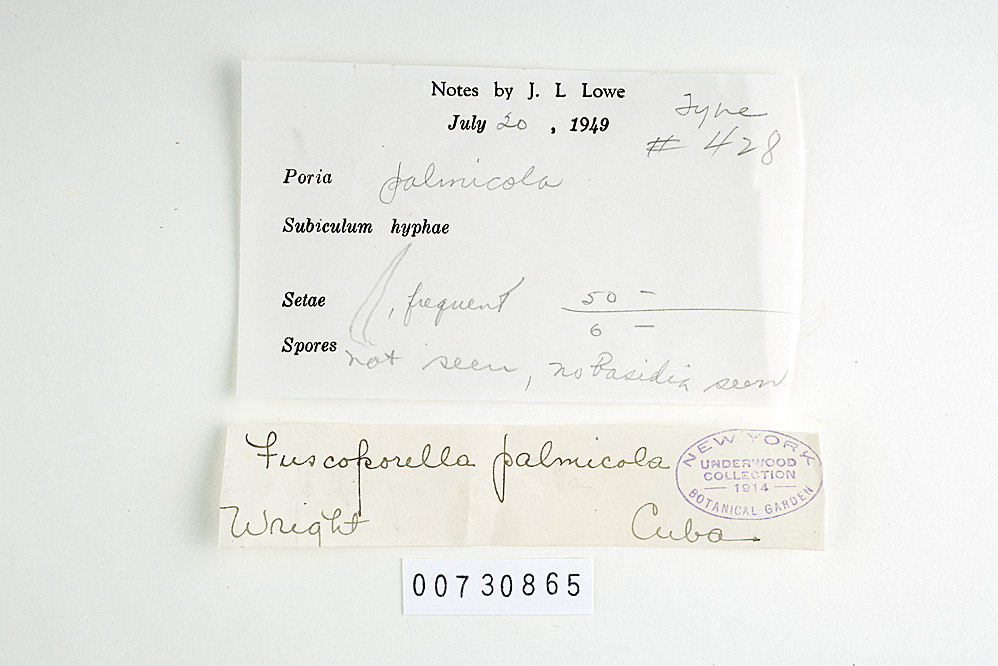 Notes by J. L Lowe
July 20 , 1949
Type
# 428
Poria palmicola
Subiculum hyphae
Setae , frequent 50 –
6 –
Spores not seen, no basidia seen
Fuscoporella palmicola
Wright Cuba.
NEW YORK
UNDERWOOD
COLLECTION
— 1914 —
BOTANICAL GARDEN
00730865